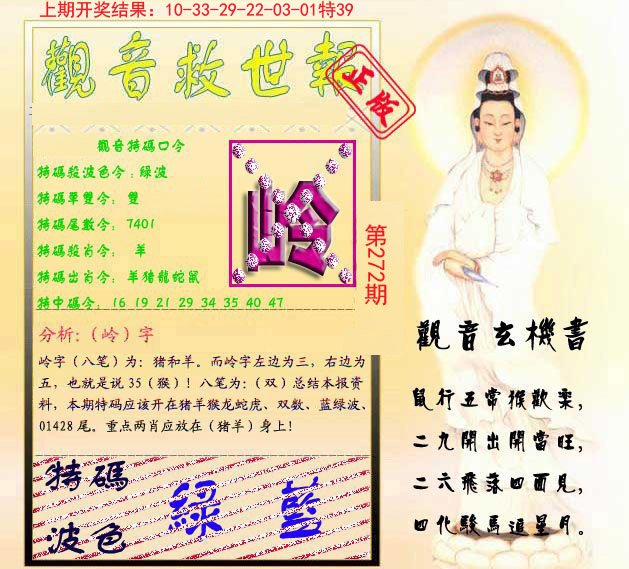 上期开奖结果：10-33-29-22-03-01特39
觀音救世報
正版
觀音特碼口令
特碼殺波色令：綠波
特碼單雙令： 雙
特碼尾數令： 7401
特碼殺肖令： 羊
特碼出肖令： 羊猪龍蛇鼠
特中碼令： 16 19 21 29 34 35 40 47
岭
第272期
分析:（岭）字
岭字（八笔）为：猪和羊。而岭字左边为三，右边为
五，也就是说 35（猴）！八笔为:（双）总结本报资
料，本期特码应该开在猪羊猴龙蛇虎、双数、蓝绿波、
01428 尾。重点两肖应放在（猪羊）身上!
特碼
波色
綠 藍
觀音玄機書
鼠行五常猴歡樂，
二九開出開當旺，
二六飛落四面見，
四化駿馬追星月。